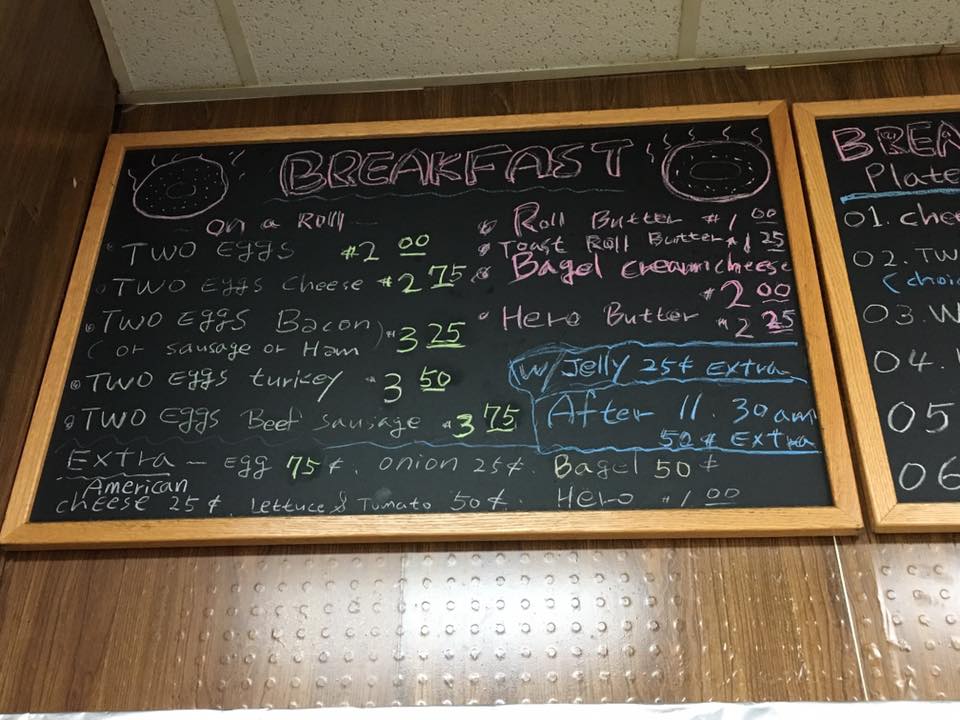 BREAKFAST
on a Roll
TWO EGGS $2 00
TWO EGGS Cheese $2 75
TWO EGGS Bacon
(or sausage or Ham) $3 25
TWO EGGS turkey $3 50
TWO EGGS Beef sausage $3 75
Roll Butter $1 00
Toast Roll Butter $1 25
Bagel creamcheese
$2 00
Hero Butter $2 25
w/ Jelly 25¢ EXTRA
After 11.30am
50¢ EXTRA
EXTRA - EGG 75¢. onion 25¢. Bagel 50¢
American
cheese 25¢. Lettuce & Tomato 50¢. Hero $1 00
BREA
Plate
01. chee
02. TW
(choi
03. W
04.
05
06